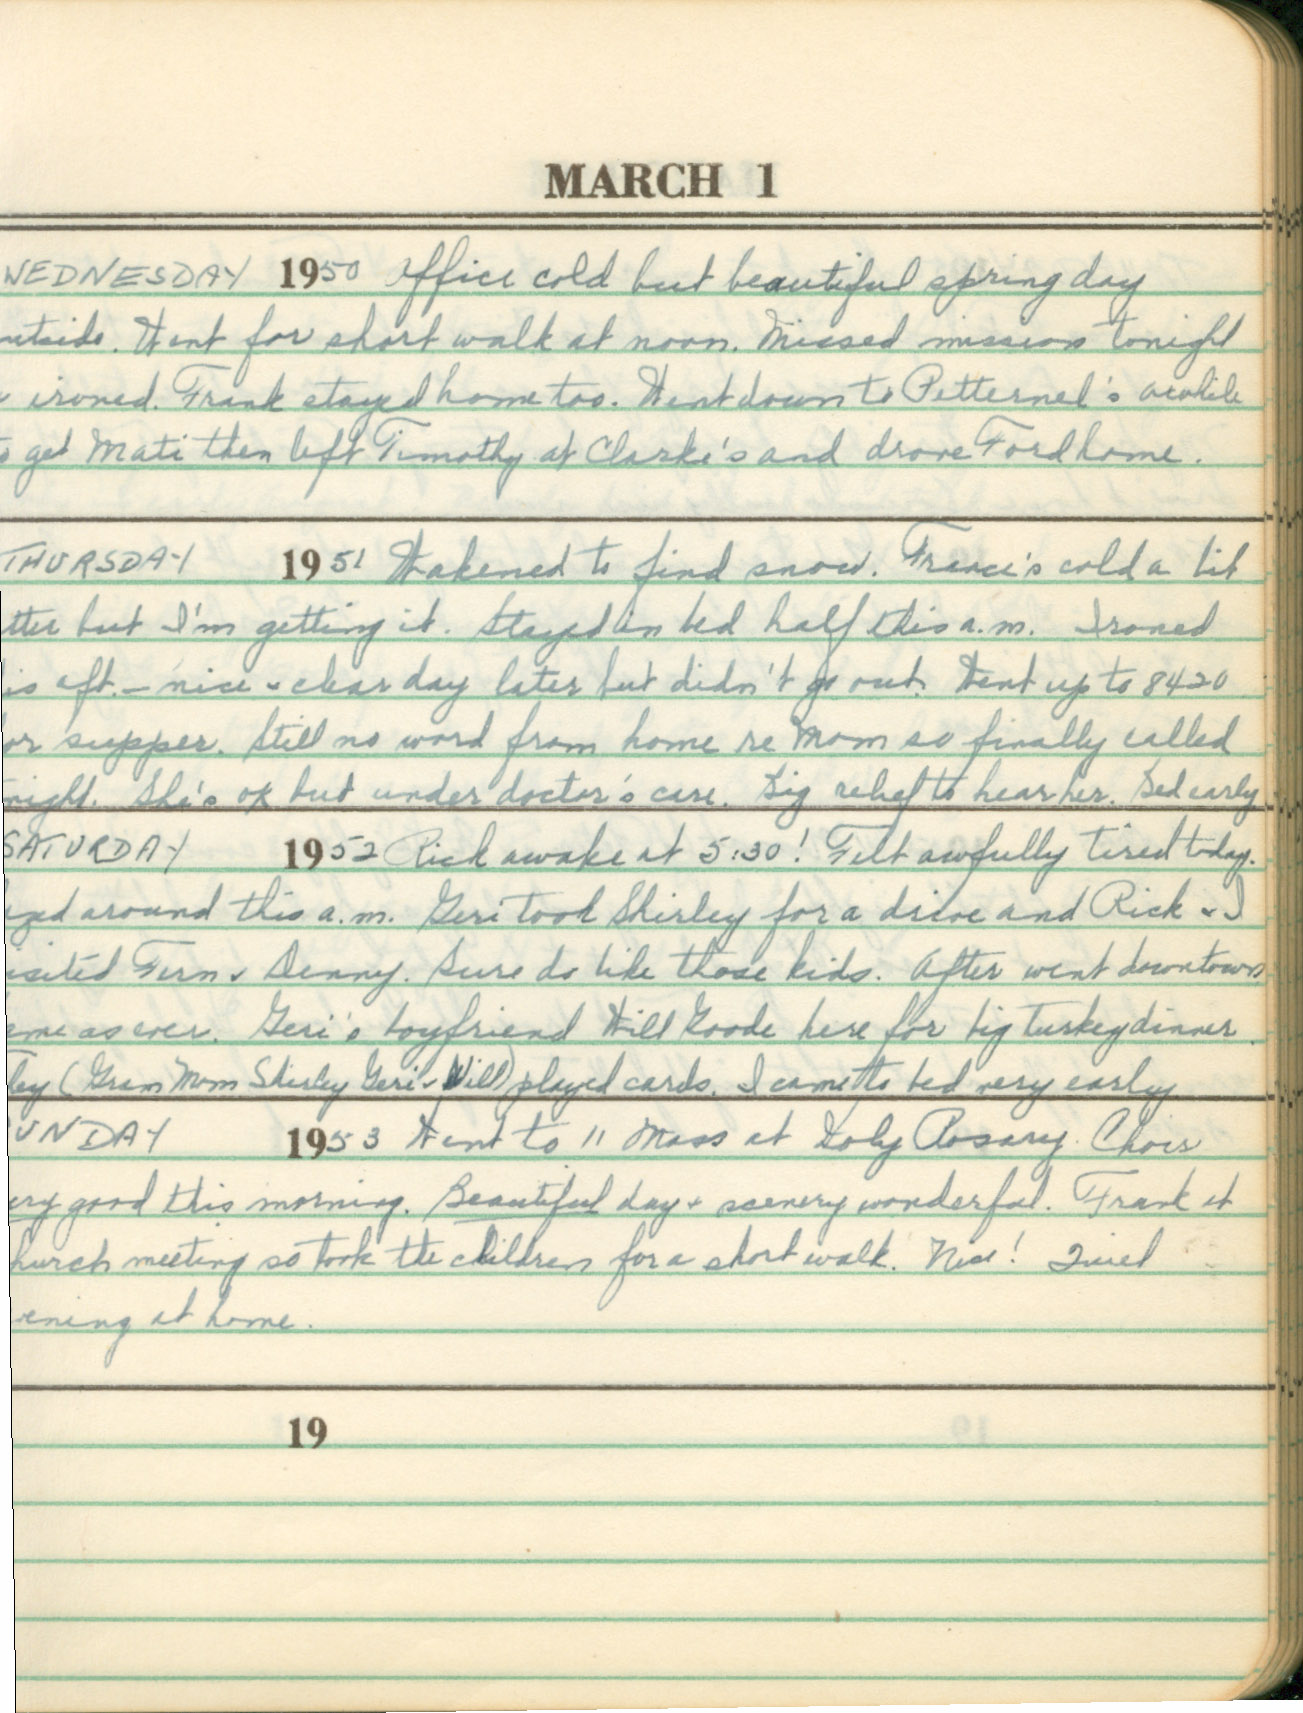 MARCH 1
WEDNESDAY 1950 Office cold but beautiful spring day
utside. Went for short walk at noon. Missed mission tonight
ironed. Frank stayed home too. Went down to Petternel's awhile
get Mati then left Timothy at Clarke's and drove Ford home.
THURSDAY 1951 Wakened to find snow. Francis's cold a bit
tter but I'm getting it. Stayed in bed half this a.m. Ironed
is aft. – nice & clear day later but didn't go out. Went up to 8420
or supper. Still no word from home re Mom so finally called
night. She's ok but under doctor's care. Big relief to hear her. Bed early
SATURDAY 1952 Rick awake at 5:30! Felt awfully tired today.
zed around this a.m. Geri took Shirley for a drive and Rick & I
isited Fern & Denny. Sure do like those kids. After went downtown
ame as ever. Geri's boyfriend Will Goode here for big turkey dinner.
hey (Gram Mom Shirley Geri & Will) played cards. I came to bed very early
UNDAY 1953 Went to 11 Mass at Holy Rosary. Choir
ery good this morning. Beautiful day & scenery wonderful. Frank at
hurch meeting so took the children for a short walk. Nice! Quiet
vening at home.
19